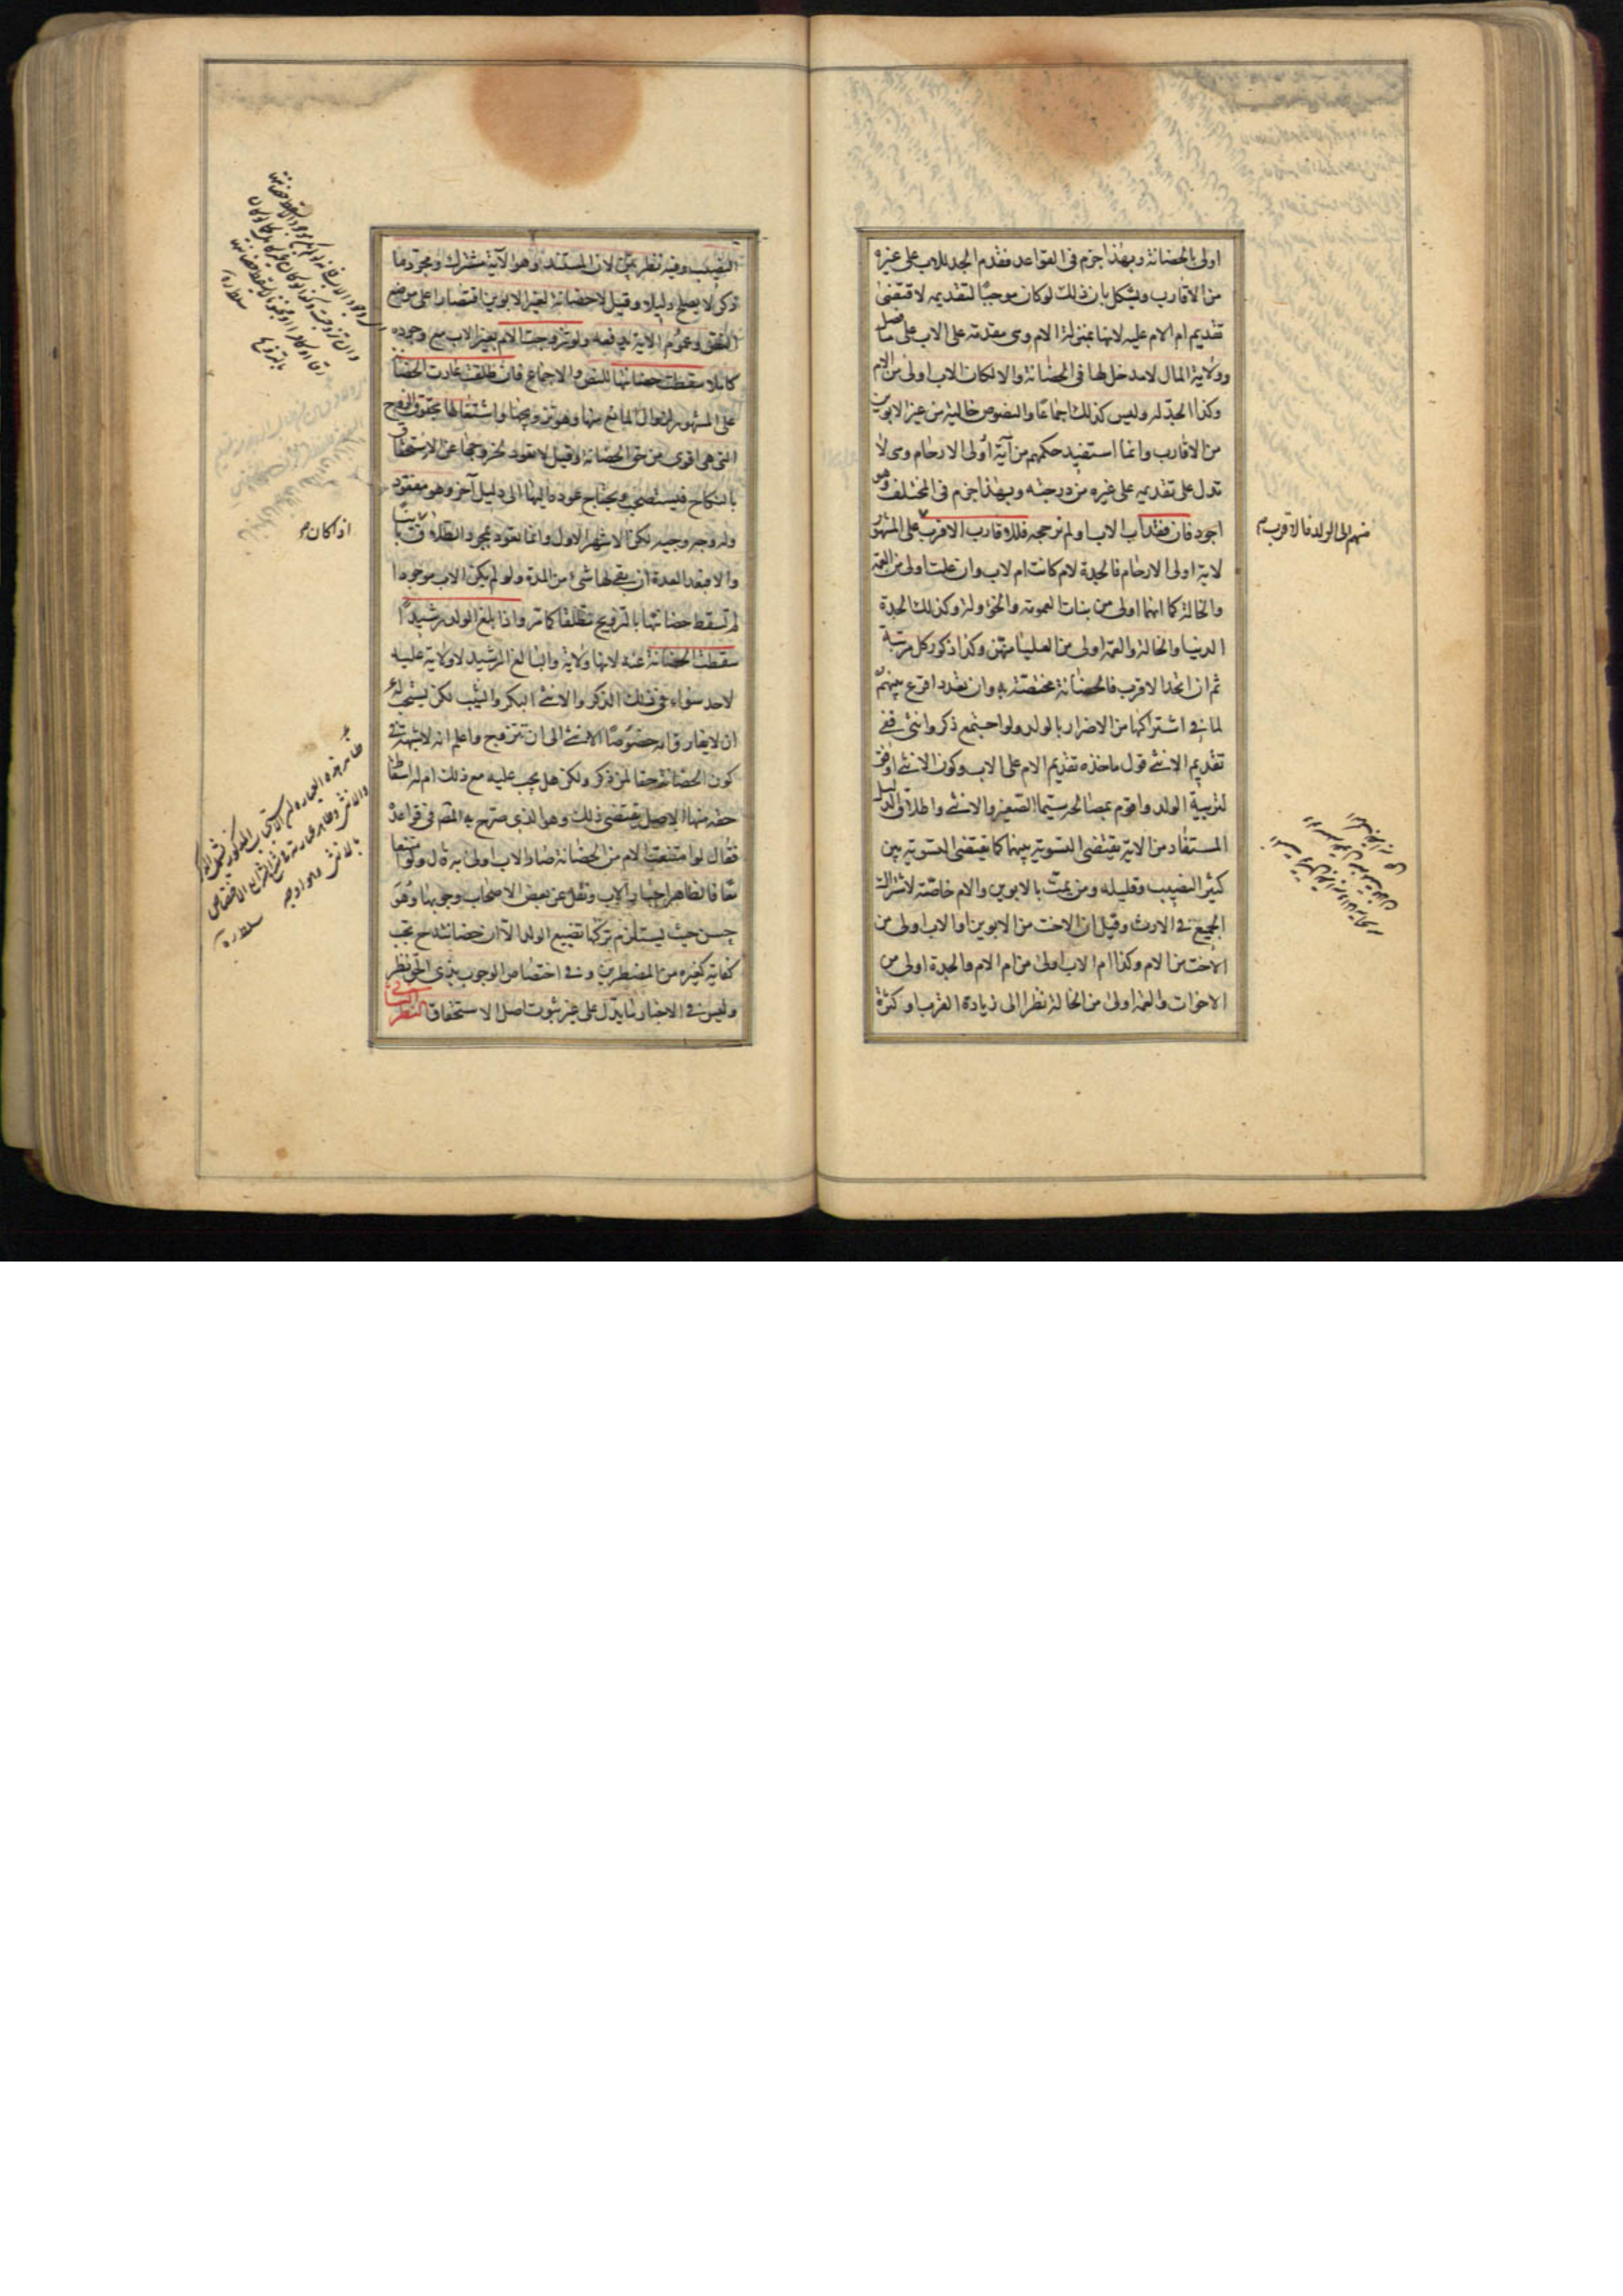 اولى بالحضانة وبهذا جزم فى القواعد فقدم الجد للاب على غيره
من الاقارب ويشكل بان ذلك لو كان موجبا لتقديمه لاقتضى
تقديم ام الام عليه لانها بمنزلة الام وهى مقدمة على الاب على ما فصل
وولاية المال لا مدخل لها فى الحضانة والا لكان الاب اولى من الام
وكذا الجد له وليس كذلك اجماعا والنصوص خالية من غير الابوين
من الاقارب وانما استفيد حكمهم من آية اولى الارحام وهى لا
تدل على تقديمه على غيره من درجته وبهذا جزم فى المختلف وهو
اجود فان فقد اب الاب او لم نرجحه فللاقارب الاقرب على المشهور
لاية اولى الارحام فالجدة لام كانت ام لاب وان علت اولى من العمة
والخالة كما انهما اولى من بنات العمومة والخؤولة وكذلك الجدة
الدنيا والخالة والعمة اولى من العليا منهن وكذا ذكور كل مرتبة
ثم ان اتحد الاقرب فالحضانة مختصة به وان تعدد اقرع بينهم
لما فى اشتراكها من الاضرار بالولد ولو اجتمع ذكر وانثى ففى
تقديم الانثى قول ماخذه تقديم الام على الاب وكون الانثى اوفق
لتربية الولد واقوم بمصالحه سيما الصغير والانثى واطلاق الدليل
المستفاد من الاية يقتضى التسوية بينهما كما يقتضى التسوية بين
كثير النصيب وقليله ومن يمت بالابوين والام خاصة لاشتراك
الجميع فى الارث وقيل ان الاخت من الابوين او الاب اولى من
الاخت من الام وكذا ام الاب اولى من ام الام والجدة اولى من
الاخوات والعمة اولى من الخالة نظرا الى زيادة القرب او كثرة
منهم الى الولد فالاقرب
النصيب وفيه نظر بين لان المستند وهو الآية مشترك ومجرد ما
ذكر لا يصلح دليلا وقيل لا حضانة لغير الابوين اقتصارا على موضع
النص وعموم الاية يدفعه ولو تزوجت الام بغير الاب مع وجوده
كاملا سقطت حضانتها للنص والاجماع فان طلقت عادت الحضانة
على المشهور لزوال المانع منها وهو تزويجها واشتغالها بحقوق الزوج
التى هى اقوى من حق الحضانة وقيل لا تعود لخروجها عن الاستحقاق
بالنكاح فيستصحب ويحتاج عوده اليها الى دليل آخر وهو مفقود
وله وجه وجيه لكن الاشهر الاول وانما تعود بمجرد الطلاق
والا فبعد العدة ان بقى لها شئ من المدة ولو لم يكن الاب موجودا
لم تسقط حضانتها بالتزويج مطلقا كما مر واذا بلغ الولد رشيدا
سقطت الحضانة عنه لانها ولاية والبالغ الرشيد لا ولاية عليه
لاحد سواء فى ذلك الذكر والانثى البكر والثيب لكن يستحب له
ان لا يفارق امه خصوصا الانثى الى ان تتزوج واعلم انه لا شبهة فى
كون الحضانة حقا لمن ذكر ولكن هل يجب عليه مع ذلك ام له اسقاط
حقه منها الاصل يقتضى ذلك وهو الذى صرح به المصـ فى قواعده
فقال لو امتنعت الام من الحضانة صار الاب اولى به قال ولو امتنعا
معا فالظاهر اجبار الاب ونقل عن بعض الاصحاب وجوبها وهو
حسن حيث يستلزم تركها تضييع الولد الا ان حضانته ح تجب
كفاية كغيره من المضطرين وفى اختصاص الوجوب بذى الحق نظر
وليس فى الاخبار ما يدل على غير ثبوت اصل الاستحقاق النظر الثانى
اذا كان